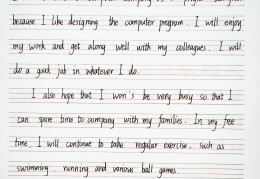 because I like designing the computer program. I will enjoy
my work and get along well with my colleagues. I will
do a good job in whatever I do.
I also hope that I won's be very busy so that I
can spare time to company with my families. In my free
time, I will continue to take regular exercise, such as
swimming running and various ball games.